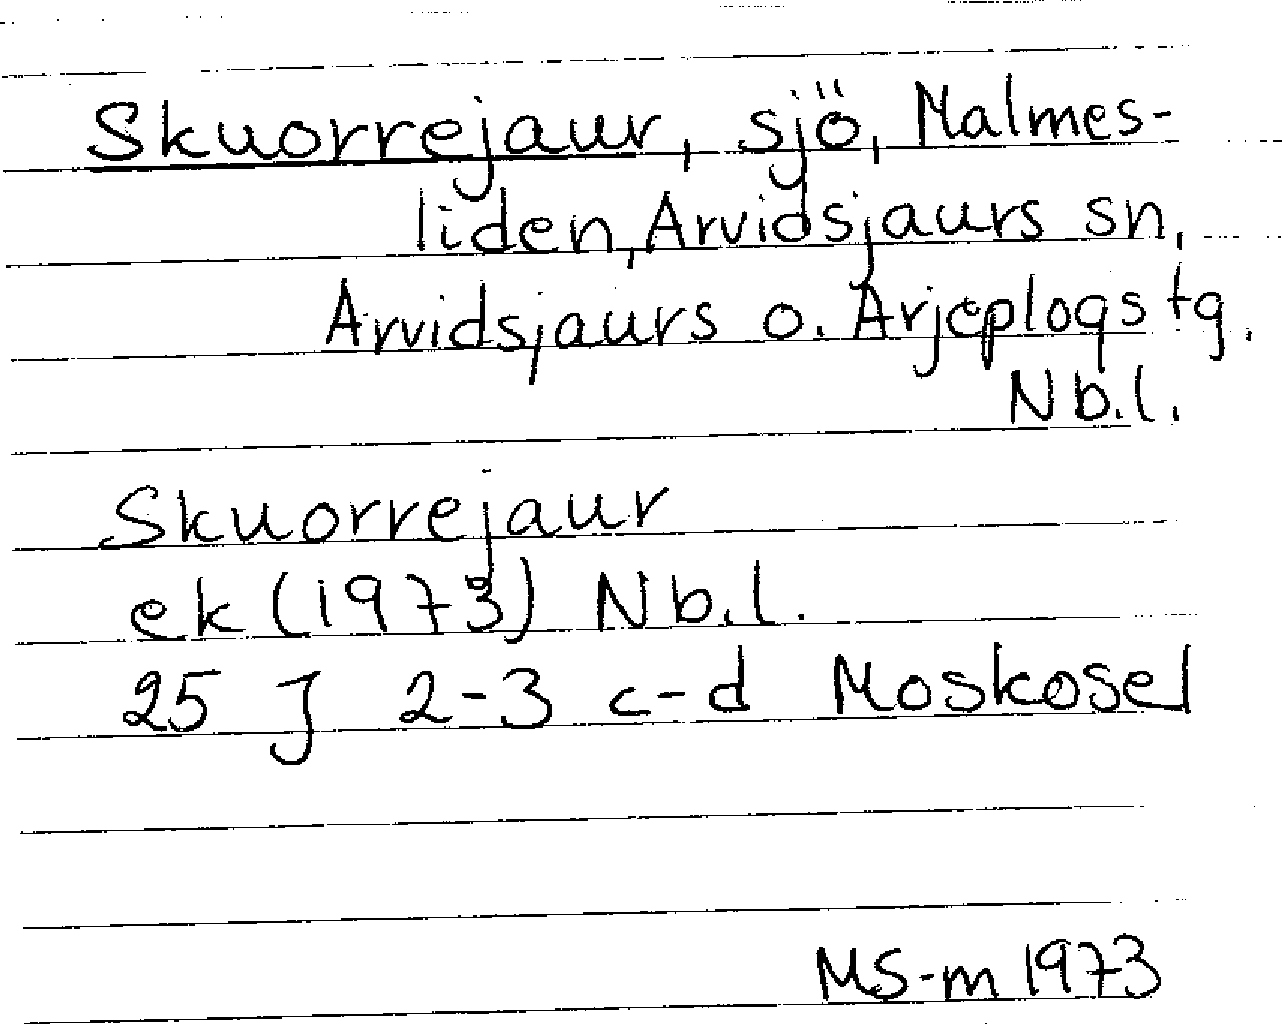 Skuorrejaur, sjö, Malmes-
liden, Arvidsjaurs sn,
Arvidsjaurs o. Arjeplogs tg.
Nb.l.
Skuorrejaur
ek (1973) Nb.l.
25 J 2-3 c-d Moskosel
MS-m 1973